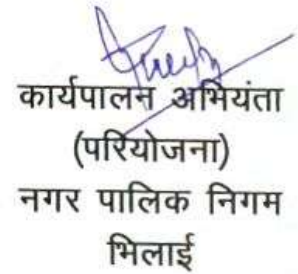 कार्यपालन अभियंता
(परियोजना)
नगर पालिक निगम
भिलाई